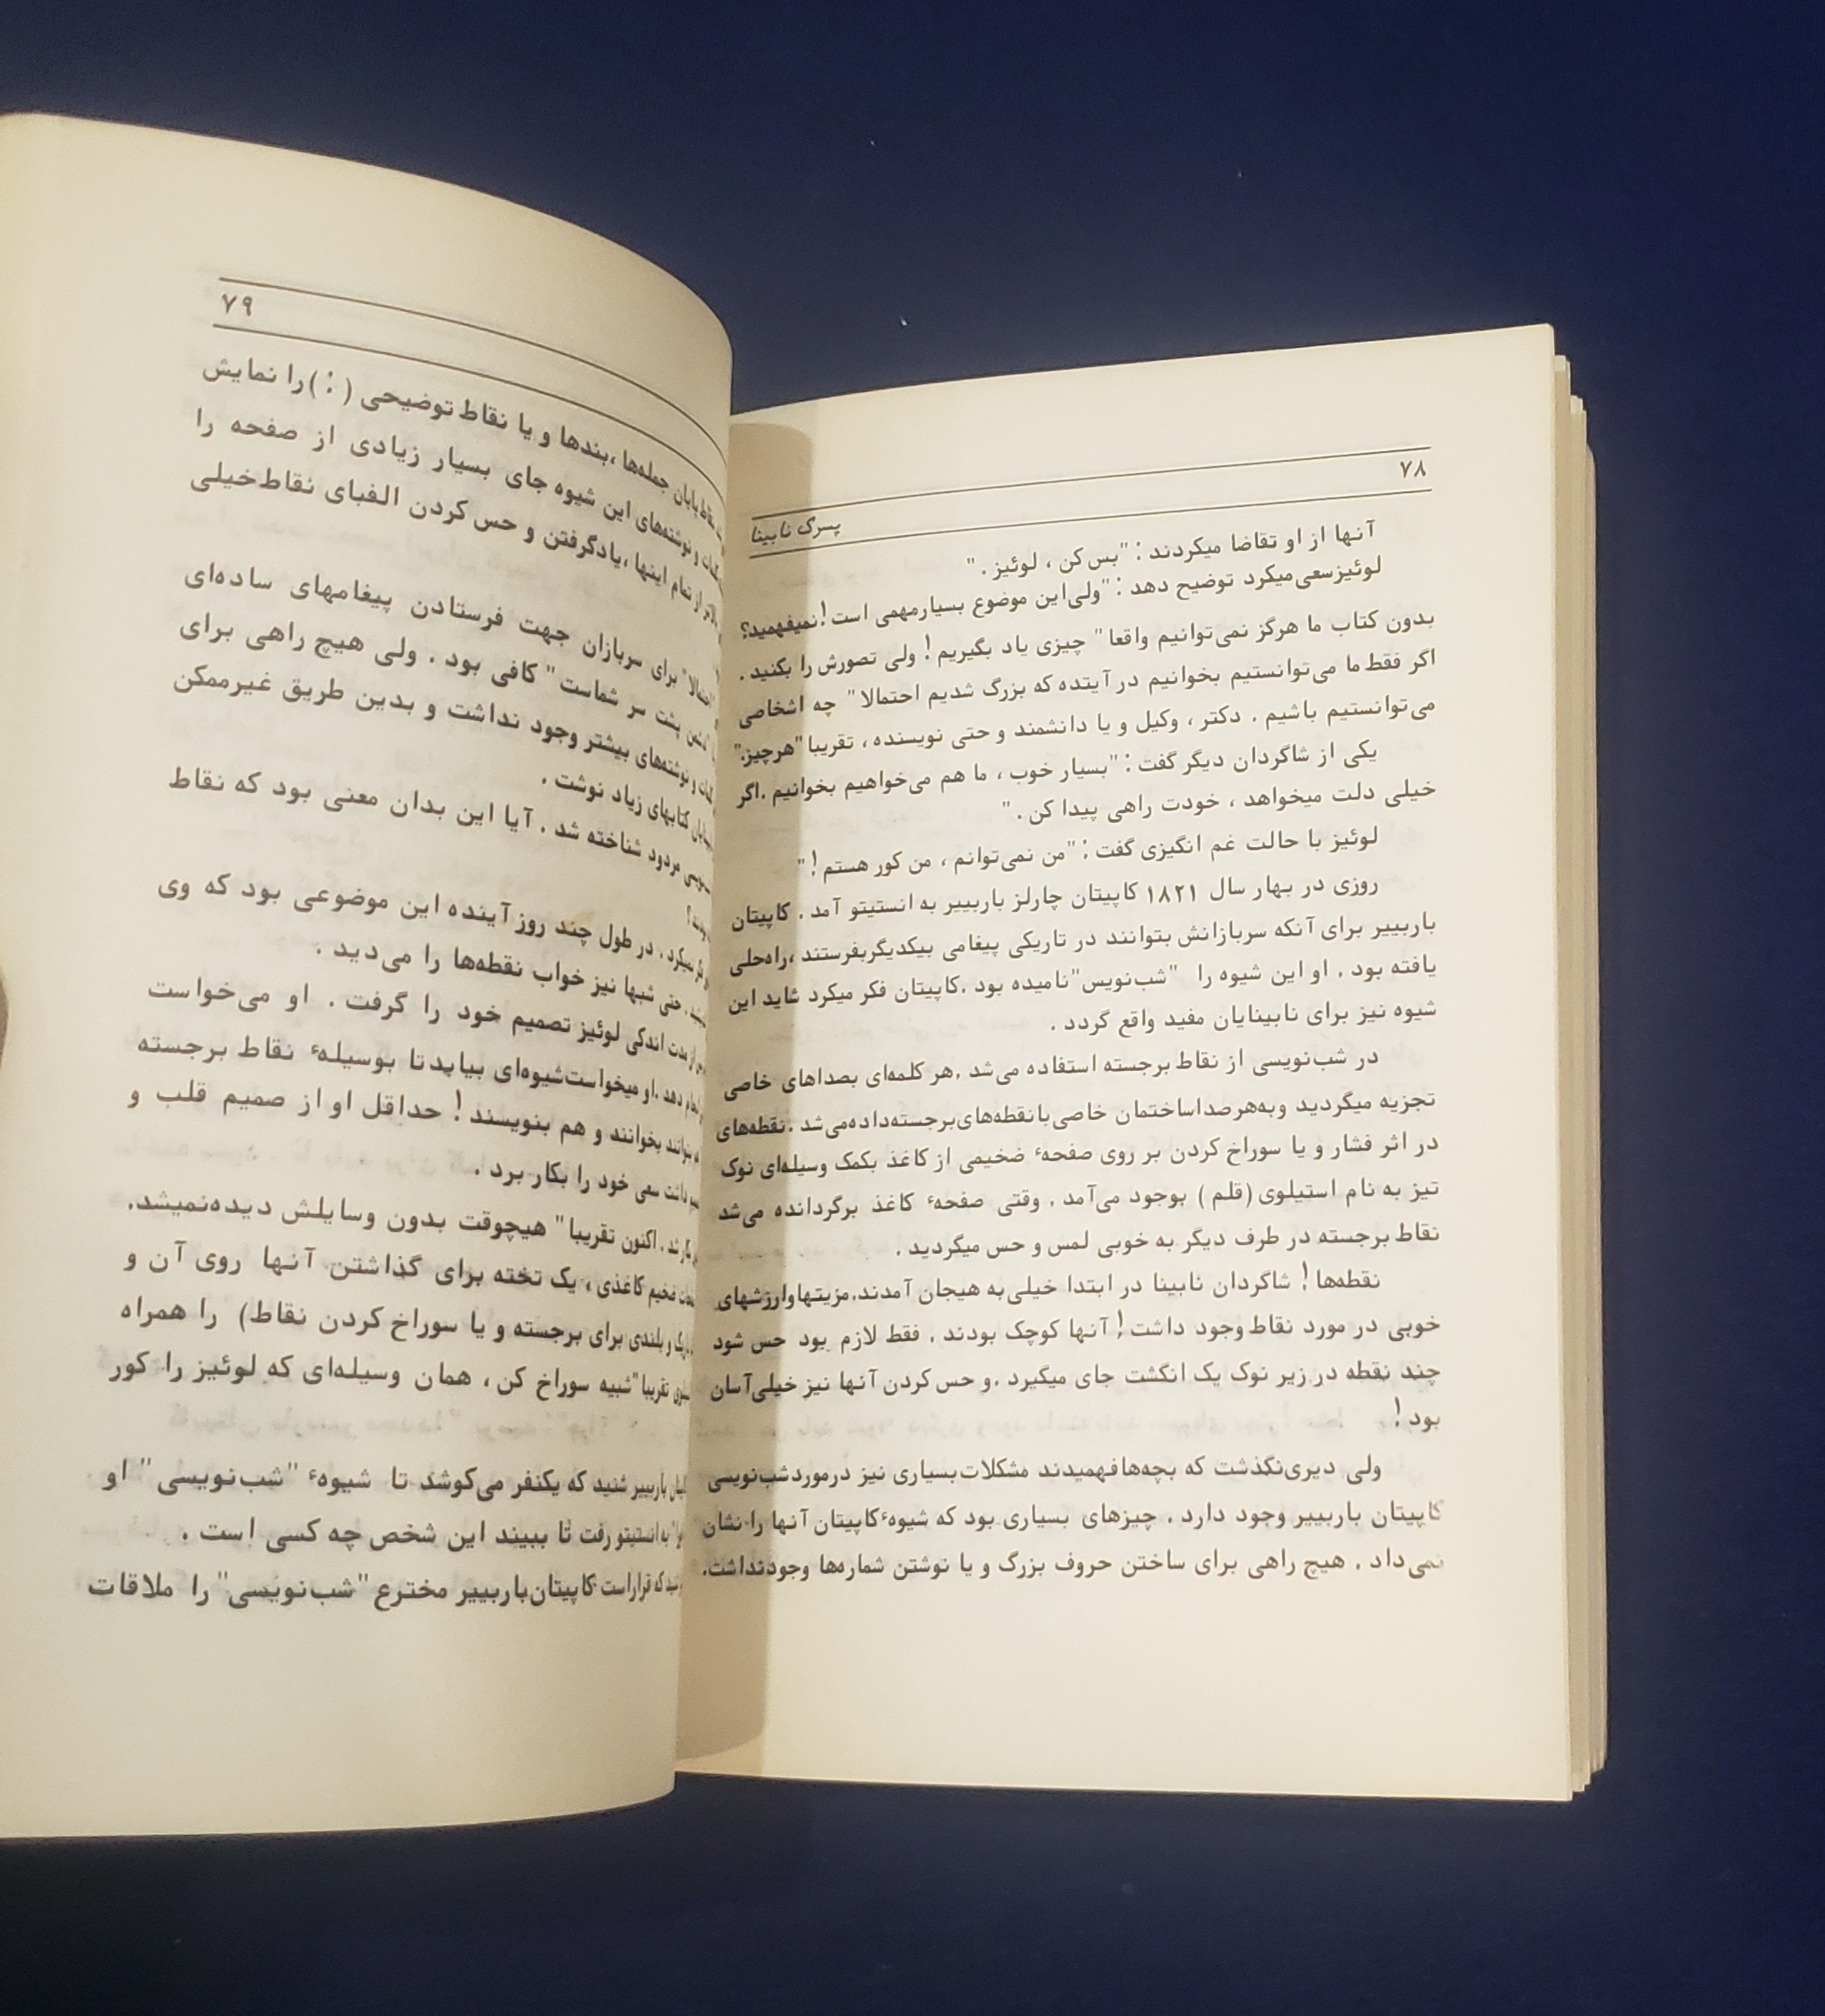 ۷۸
پسرک نابینا
آنها از او تقاضا میکردند : "بس‌کن ، لوئیز . "
لوئیزسعی‌میکرد توضیح دهد : "ولی‌این موضوع بسیارمهمی است!نمیفهمید؟
بدون کتاب ما هرگز نمی‌توانیم واقعا" چیزی یاد بگیریم ! ولی تصورش را بکنید .
اگر فقط ما می‌توانستیم بخوانیم در آینده که بزرگ شدیم احتمالا" چه اشخاصی
می‌توانستیم باشیم . دکتر ، وکیل و یا دانشمند و حتی نویسنده ، تقریبا "هرچیز."
یکی از شاگردان دیگر گفت : "بسیار خوب ، ما هم می‌خواهیم بخوانیم .اگر
خیلی دلت میخواهد ، خودت راهی پیدا کن . "
لوئیز با حالت غم انگیزی گفت : "من نمی‌توانم ، من کور هستم ! "
روزی در بهار سال ۱۸۲۱ کاپیتان چارلز باربییر به انستیتو آمد . کاپیتان
باربییر برای آنکه سربازانش بتوانند در تاریکی پیغامی بیکدیگربفرستند ،راه‌حلی
یافته بود . او این شیوه را "شب‌نویس"نامیده بود .کاپیتان فکر میکرد شاید این
شیوه نیز برای نابینایان مفید واقع گردد .
در شب‌نویسی از نقاط برجسته استفاده می‌شد .هر کلمه‌ای بصداهای خاصی
تجزیه میگردید وبه‌هرصداساختمان خاصی‌بانقطه‌های‌برجسته‌داده‌می‌شد .نقطه‌های
در اثر فشار و یا سوراخ کردن بر روی صفحهٔ ضخیمی از کاغذ بکمک وسیله‌ای نوک
تیز به نام استیلوی (قلم) بوجود می‌آمد . وقتی صفحهٔ کاغذ برگردانده می‌شد
نقاط برجسته در طرف دیگر به خوبی لمس و حس میگردید .
نقطه‌ها ! شاگردان نابینا در ابتدا خیلی‌به هیجان آمدند.مزیتهاوارزشهای
خوبی در مورد نقاط وجود داشت ! آنها کوچک بودند . فقط لازم بود حس شود
چند نقطه در زیر نوک یک انگشت جای میگیرد .و حس کردن آنها نیز خیلی‌آسان
بود !
ولی دیری‌نگذشت که بچه‌هافهمیدند مشکلات‌بسیاری نیز درمورد شب‌نویسی
کاپیتان باربییر وجود دارد . چیزهای بسیاری بود که شیوهٔ‌کاپیتان آنها را نشان
نمی‌داد . هیچ راهی برای ساختن حروف بزرگ و یا نوشتن شماره‌ها وجودنداشت.
۷۹
نقاط پایان جمله‌ها ،بندها و یا نقاط توضیحی ( : )را نمایش
و نوشته‌های این شیوه جای بسیار زیادی از صفحه را
از تمام اینها ،یادگرفتن و حس کردن الفبای نقاط‌خیلی
"احتمالا" برای سربازان جهت فرستادن پیغامهای ساده‌ای
پشت سر شماست" کافی بود . ولی هیچ راهی برای
و نوشته‌های بیشتر وجود نداشت و بدین طریق غیرممکن
کتابهای زیاد نوشت .
مردود شناخته شد . آیا این بدان معنی بود که نقاط
میکرد . در طول چند روز آینده این موضوعی بود که وی
حتی شبها نیز خواب نقطه‌ها را می‌دید .
مدت اندکی لوئیز تصمیم خود را گرفت . او می‌خواست
دهد .او میخواست‌شیوه‌ای بیابدتا بوسیلهٔ نقاط برجسته
بتوانند بخوانند و هم بنویسند ! حداقل او از صمیم قلب و
داشت سعی خود را بکار برد .
اکنون تقریبا" هیچوقت بدون وسایلش دیده‌نمیشد.
ضخیم کاغذی ، یک تخته برای گذاشتن آنها روی آن و
و بلندی برای برجسته و یا سوراخ کردن نقاط) را همراه
تقریبا "شبیه سوراخ کن ، همان وسیله‌ای که لوئیز را کور
باربییر شنید که یکنفر می‌کوشد تا شیوهٔ "شب‌نویسی" او
به انستیتو رفت تا ببیند این شخص چه کسی است .
که قراراست کاپیتان‌باربییر مخترع "شب‌نویسی" را ملاقات